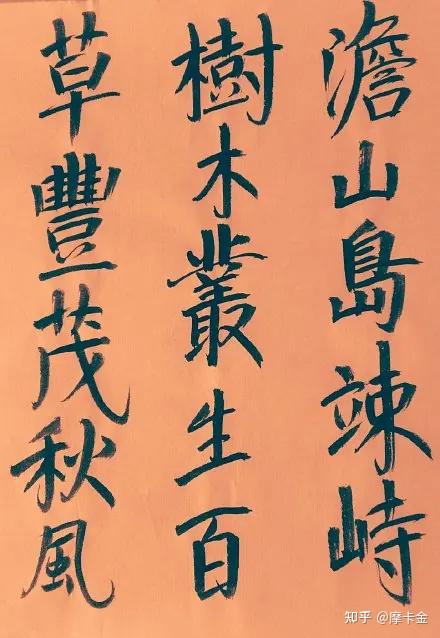 澹山島竦峙
樹木叢生百
草豐茂秋風
知乎 @摩卡金